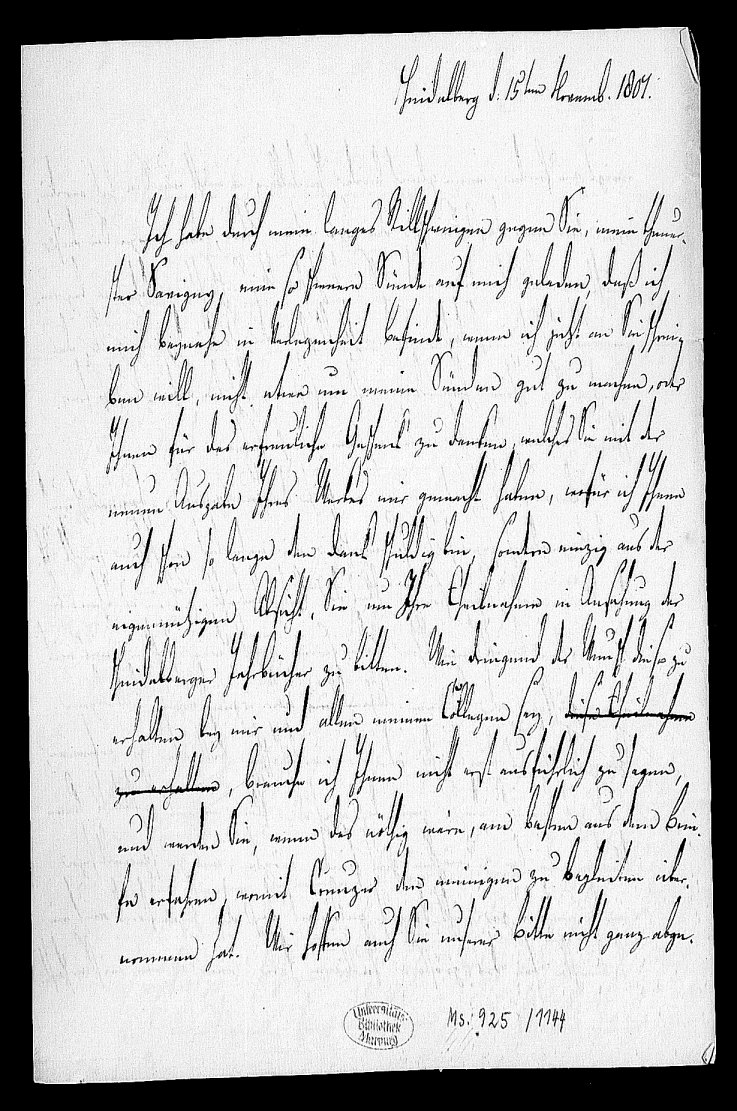 Heidelberg d. 15ten Novemb. 1807.
Ich habe durch mein langes Stillschweigen gegen Sie, mein theuer-
ster Savigny, eine so schwere Sünde auf mich geladen, daß ich
mich beynahe in Verlegenheit befinde, wenn ich jetzt an Sie schrei-
ben will, nicht etwa um meine Sünden gut zu machen, oder
Ihnen für das erfreuliche Geschenk zu danken, welches Sie mit der
neuen Ausgabe Ihres Werkes mir gemacht haben, wofür ich Ihnen
auch schon so lange den Dank schuldig bin, sondern einzig aus der
eigennützigen Absicht, Sie um Ihre Theilnahme in Ansehung der
Heidelberger Jahrbücher zu bitten. Wie dringend der Wunsch diese zu
erhalten bey mir und allen meinen Collegen sey, diese Theilnahme
zu erhalten, brauche ich Ihnen nicht erst ausführlich zu sagen,
und werden Sie, wenn das nöthig wäre, am besten aus dem Brie-
fe erfahren, womit Creuzer den meinigen zu begleiten über-
nommen hat. Wir hoffen auch Sie unserer Bitte nicht ganz abge-
Universitäts
Bibliothek
Marburg
Ms. 925 /1144